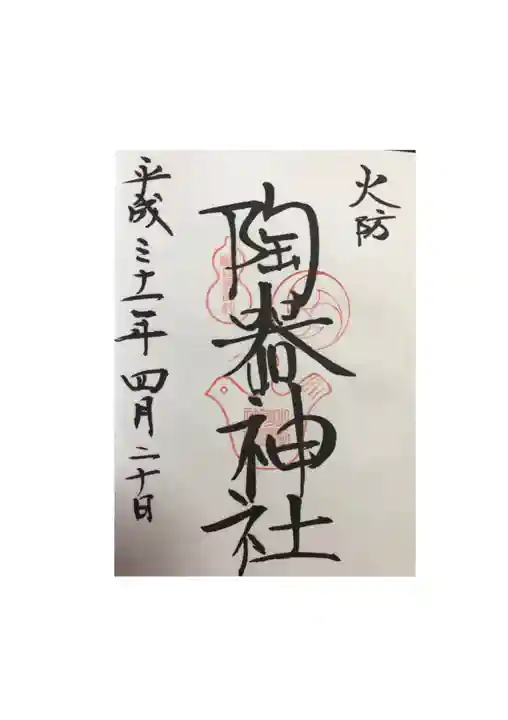 火防
陶器神社
平成三十一年四月二十日